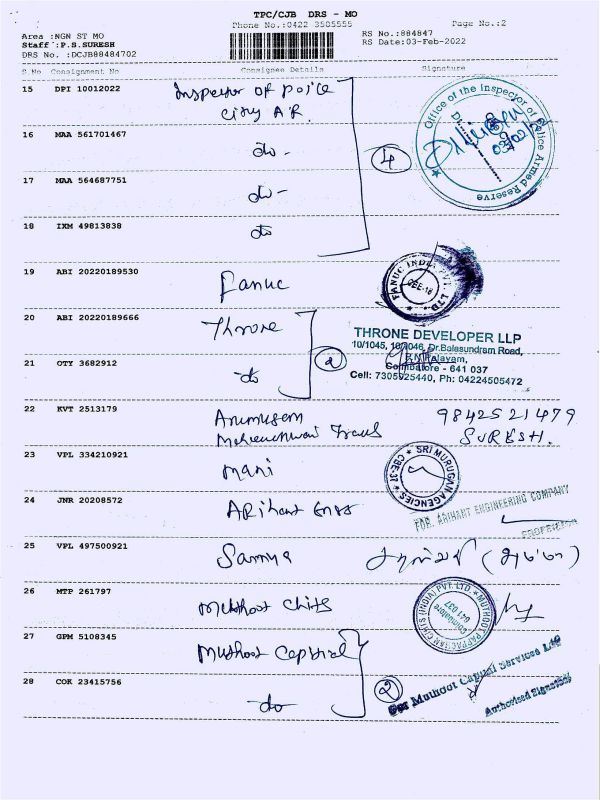 TPC/CJB DRS - MO
Phone No.:0422 3505555
Page No.:2
Area :NGN ST MO
Staff :P.S.SURESH
DRS No. :DCJB88484702
RS No.:884847
RS Date:03-Feb-2022
S.No Consignment No Consignee Details Signature
15 DPI 10012022 Inspector of police
City AR.
Office of the Inspector of Police Armed Reserve
16 MAA 561701467 do -
4
17 MAA 564687751 do -
18 IXM 49813838 do
19 ABI 20220189530 Fanuc
FANUC INDIA PVT. LTD.
20 ABI 20220189666 Throne
THRONE DEVELOPER LLP
10/1045, 10/1046, Dr.Balasundram Road,
P.N.Palayam,
Coimbatore - 641 037
Cell: 7305925440, Ph: 04224505472
21 OTY 3682912 do
2
22 KVT 2513179
9842521479
SURESH.
23 VPL 334210921 Mani
SRI MURUGAN AGENCIES CBE-37
24 JNR 20208572 ARihant Engg
FOR ARIHANT ENGINEERING COMPANY
25 VPL 497500921
26 MTP 261797 Muthoot Chits
MUTHOOT PAPPACHAN CHITS (INDIA) PVT. LTD
Coimbatore
641 037
27 GPM 5108345 Muthoot Capital
For Muthoot Capital Services Ltd
Authorised Signatory
28 COK 23415756 do
2